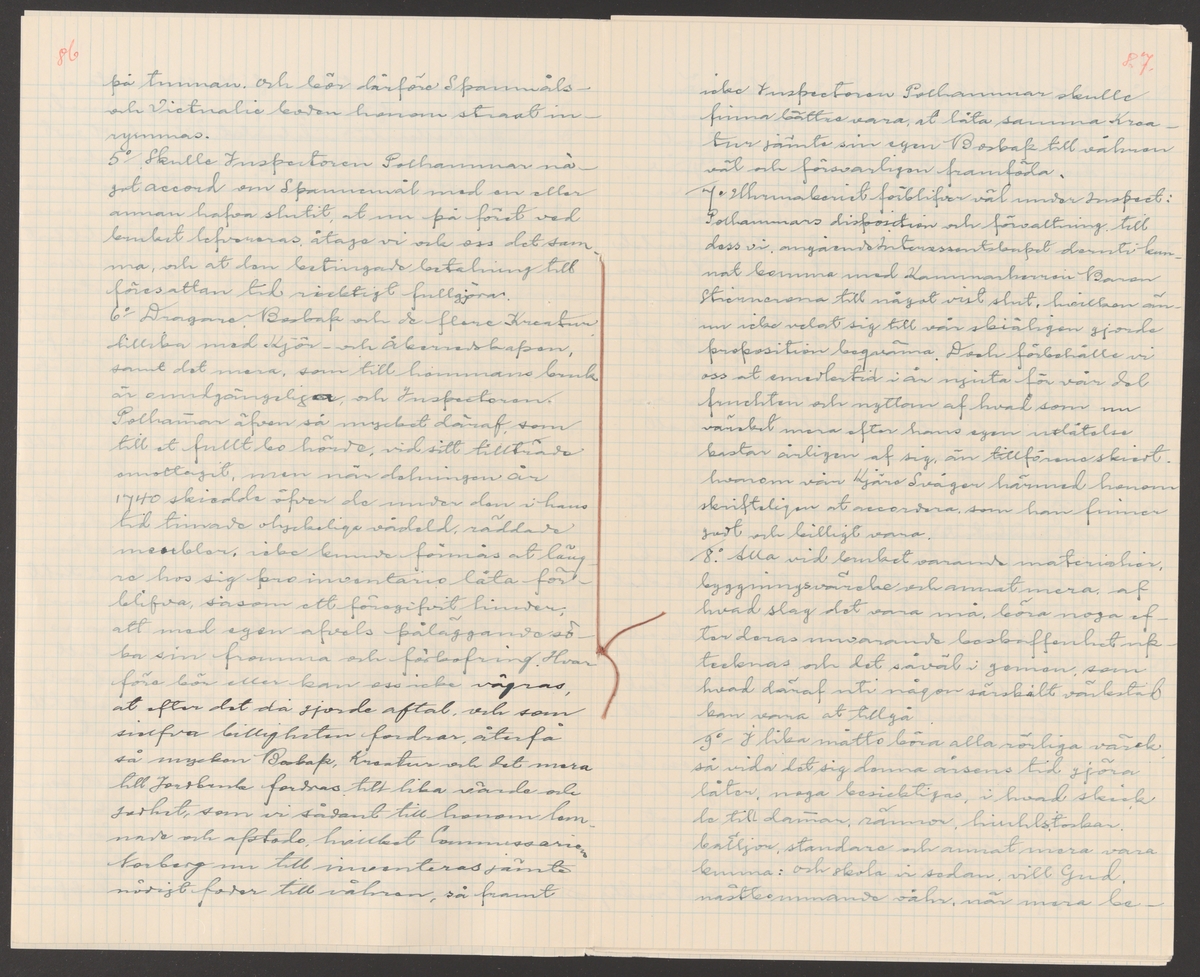 86
på tunnan. och bör därföre Spanmåls-
och Victualie boden honom straxt in-
rymmas.
5º Skulle Inspectoren Polhammar nå-
got accord om Spannemål med en eller
annan hafva slutit, at nu på föret ved
bruket lefvereras, åtage vi ock oss det sam-
ma, och at den betingade betalning till
föresattan tid ricktigt fullgöra.
6º Dragare, Boskap och de flere Kreatur
tillika med Kjör- och Åkerredskapen,
samt det mera, som till hemmans bruk
är oundgängeliga, och Inspectoren
Polham̄ar äfven så mycket däraf, som
till et fullt bo hörde, vid sitt tillträde
emottagit, men när delningen år
1740 skiedde öfver de under den i hans
tid timade olyckelige vådeld, räddade
meubler, icke kunde förmås at läng-
re hos sig pro inventario låta för-
blifva, såsom ett föregifvit hinder,
att med egen afvels påläggande sö-
ka sin fromma och förkofring, Hvar
före bör eller kan oss icke vägras,
at efter det då gjorde aftal, och som
sielfva billigheten fordrar, återfå
så mycken Boskap, Kreatur och det mera
till Jordbruk fordras, till lika värde och
godhet, som vi sådant till honom lem-
nade och afstodo, hvilket Commissarien
Norberg nu till inventeras jämte
nödigt foder till våhren, så framt
87.
icke Inspectoren Polhammar skulle
finna bättre vara, at låta samma Krea-
tur jämte sin egen Boskap till våhren
väl och försvarligen framföda.
7º Uhrmakeriet förblifver väl under Inspect:
Polhammars disposition och förvaltning, till
dess vi, angående Interessentskapet deruti kun-
nat komma med Kammarherren Baron
Stiernerona till något vist slut, hvilken än-
nu icke velat sig till vår skiäligen gjorde
proposition beqväma. Doch förbehålle vi
oss at emedlertid i år njuta för vår del
fruchten och nyttom af hvad som nu
värcket mera efter hans egen utlåtelse
kastar årligen af sig, än tillförene skiedt.
hvarom vår Kjäre Svåger härmed honom
skrifteligen at accordera, som han finner
godt och billigt vara.
8º Alla vid bruket varande materialier,
byggningsvärcke och annat mera, af
hvad slag det vara må, böra noga ef-
ter deras nuvarande beskaffenhet up-
tecknas och det såväl i gemen, som
hvad däraf uti någon särskilt värkstad
kan vara at tillgå.
9º I lika måtto böra alla rörliga värck
så vida det sig denna årsens tid gjöra
låter, noga besicktigas, i hvad skick
de till dam̄ar, rännor, hiuhlstockar,
bälljor, standare och annat mera vara
kunna: och skola vi sedan, vill Gud,
nästkommande våhr, når mera be-